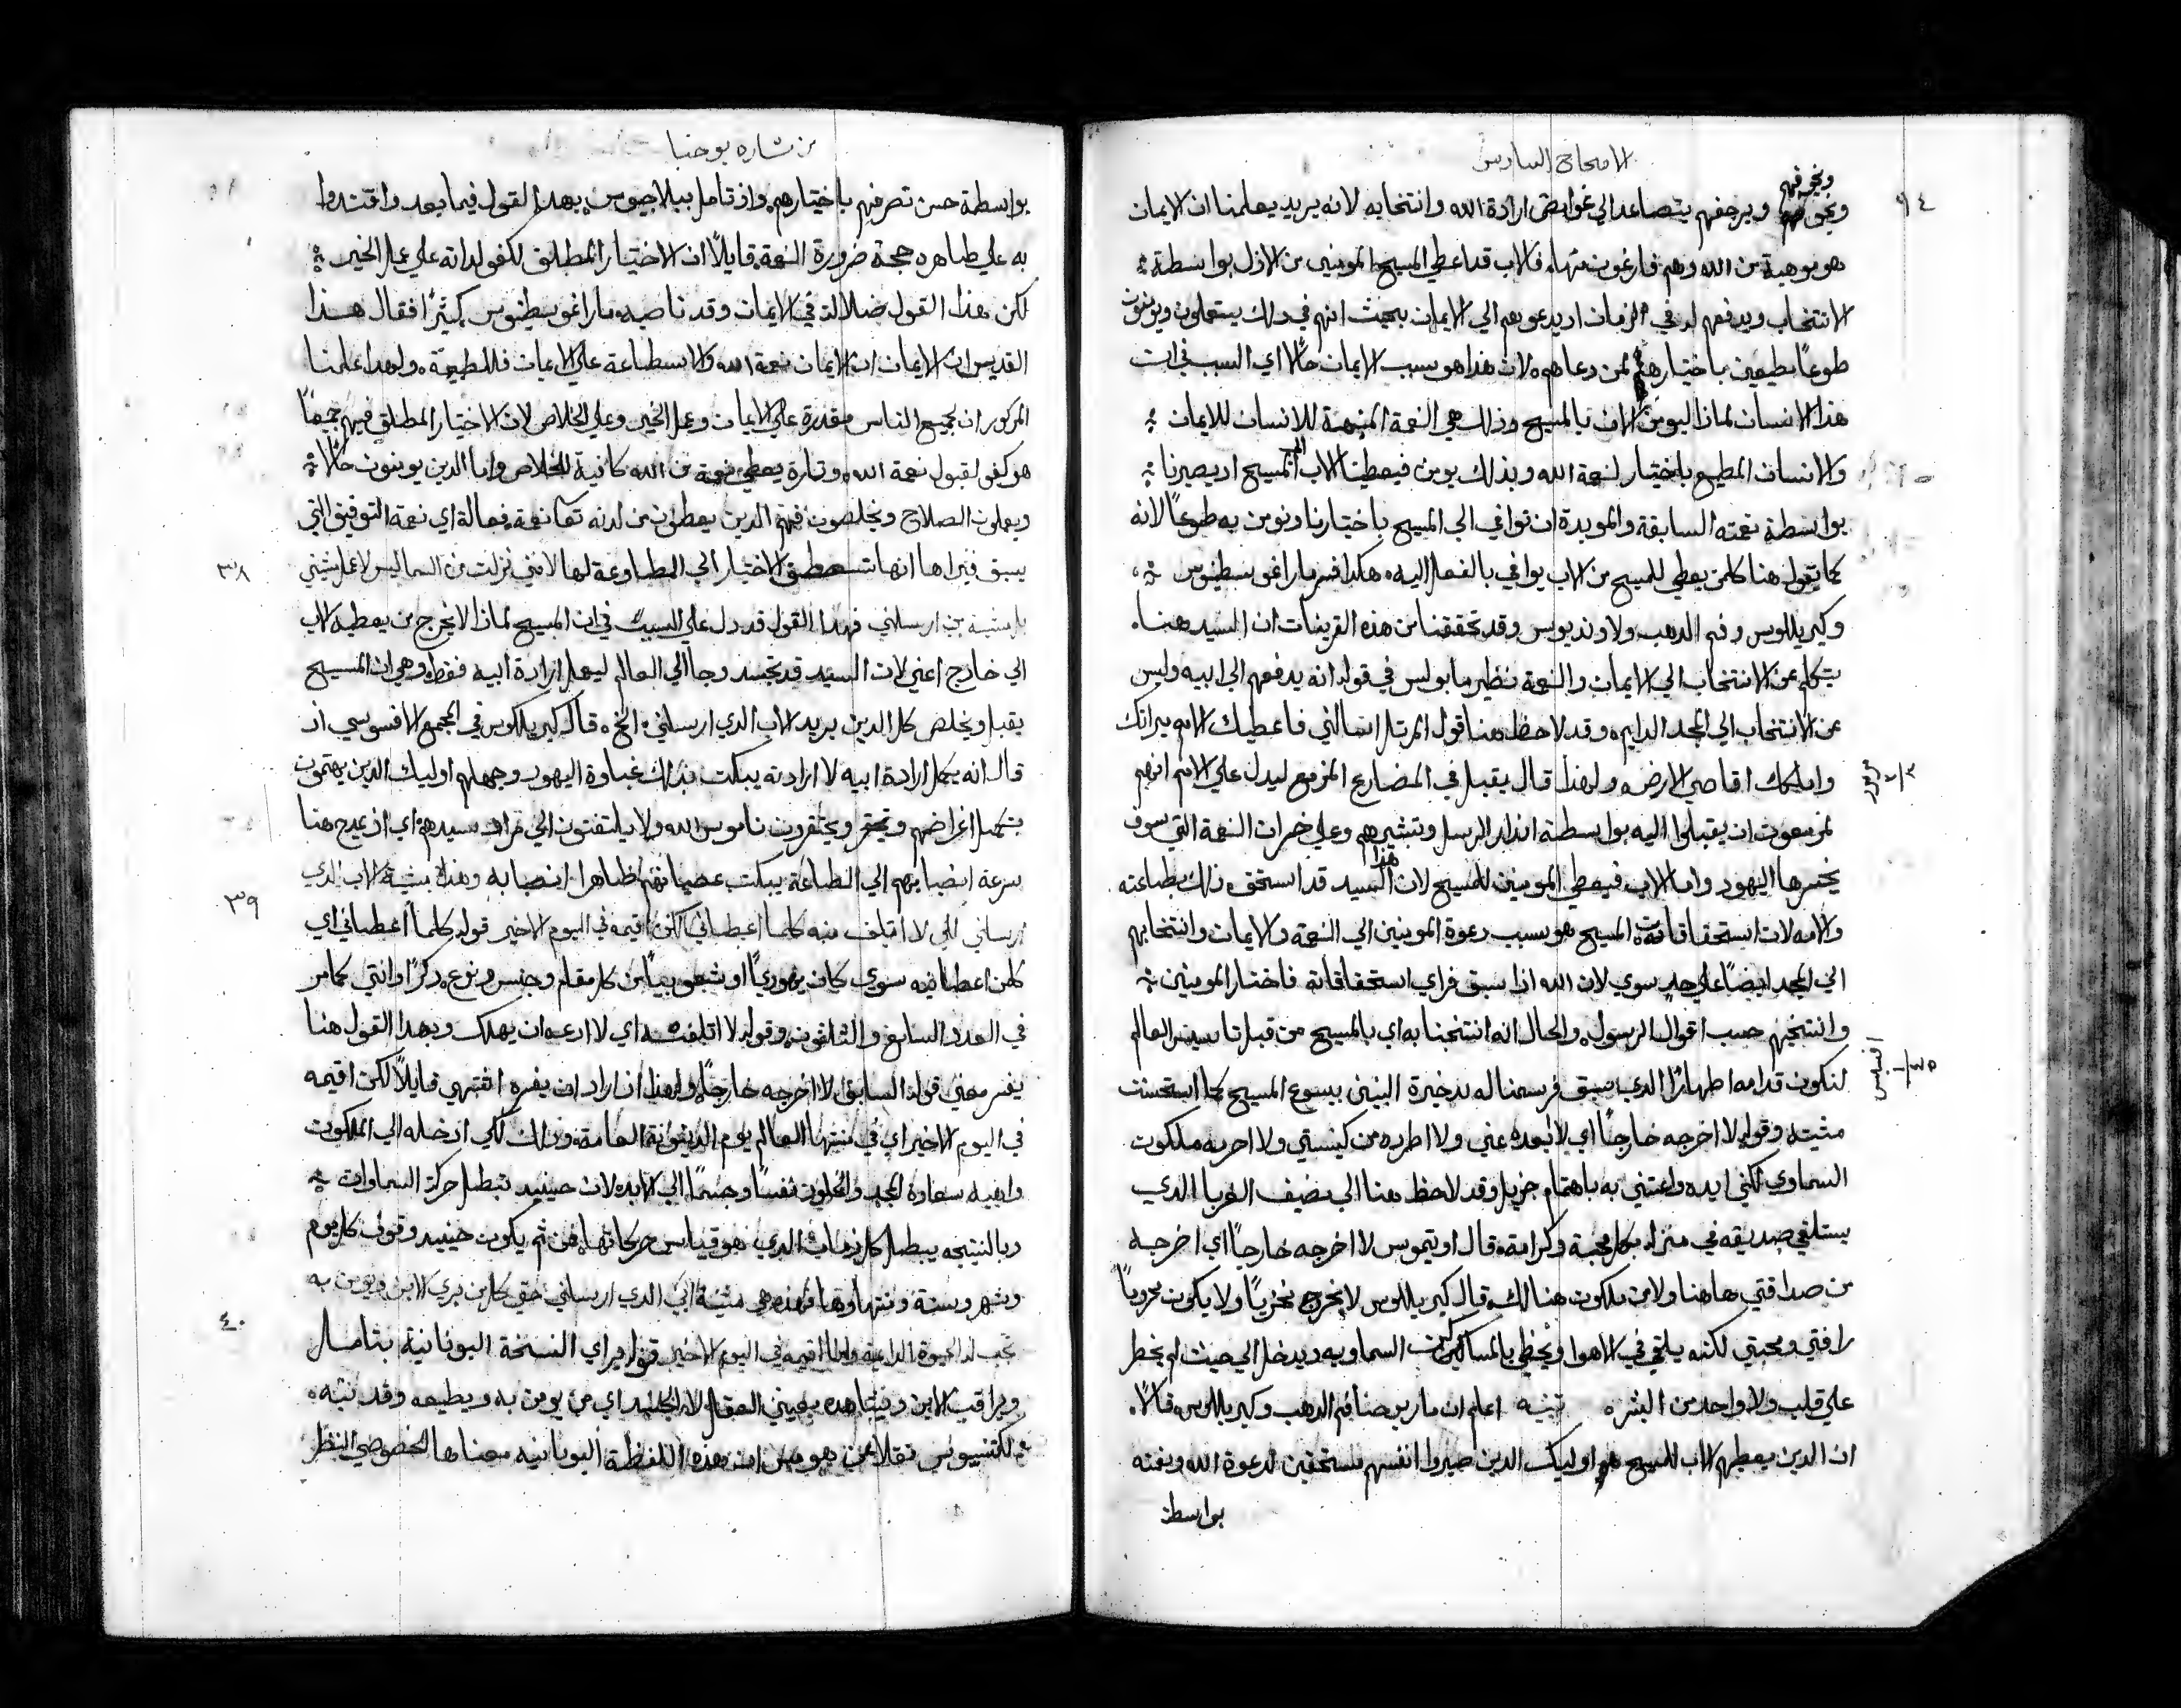 الاصحاح السادس
٩٤
ويخوفهم
ويرجفهم يتصاعد الي غوامض ارادة الله وانتخابه لانه يريد يعلمنا ان الايمان
هو موهبة من الله وهم فارغون منها. فالاب قد اعطي المسيح المومنين من الازل بواسطة
الانتخاب ويدفعهم له في الزمان اد يدعوهم الي الايمان بحيث انهم في دلك يستعملون ويومنون
طوعًا مطيعين باختيارهم لمن دعاهم. لان هذا هو سبب الايمان حالًا اي السبب في ان
هذا الانسان لماذا ليومن الان بالمسيح وذلك هي النعمة المنبهة للانسان للايمان
والانسان المطيع باختيار لنعمة الله وبذلك يومن فيعطيه الاب الي المسيح اد يصيرنا
بواسطة نعمته السابقة والمويدة ان نوافي الي المسيح باختيارنا ونومن به طوعًا لانه
كما يقول هنا كلمن يعطي للمسيح من الاب يوافي بالفعل اليه. هكدا فسر مار اغوسطينوس
وكيريللوس وفم الدهب ولاونديوس وقد تحققنا من هذه القرينات ان السيد هنا.
يتكلم عن الانتخاب الي الايمان والنعمة نظير ما بولس في قوله انه يدفعهم الي ابيه وليس
عن الانتخاب الي المجد الدايم. وقد لاحظ هنا قول المرتل اسالني فاعطيك الامم ميراثك
واملكك اقاصي الارض. ولهذا قال يقبل في المضارع المزمع ليدل علي الامم انهم
مزمور
مزمعون ان يقبلوا اليه بواسطة اندار الرسل وتبشيرهم وعلي خمرات النعمة التي سوف
يخسرها اليهود واما الاب فيعطي المومنين للمسيح لان هذا السيد قد استحق دلك بطاعته
والامه لان استحقاقات المسيح هو سبب دعوة المومنين الي النعمة والايمان وانتخابهم
الي المجد ايضًا علي حدٍ سوي لان الله اذا سبق فراي استحقاقاته فاختار المومنين
وانتخبهم حسب اقوال الرسول. والحال انه انتخبنا به اي بالمسيح من قبل تاسيس العالم
افسس
لنكون قدامه اطهارًا الدي سبق فرسمنا له بدخيرة البنين بيسوع المسيح كما استحسنت
مشيته وقوله لا اخرجه خارجًا اي لا ابعده عني ولا اطرده من كنيستي ولا احرمه ملكوت
السماوي لكني ايده واعتني به باهتمام جزيل وقد لاحظ هنا الي مضيف الغربا الدي
يستلقي صديقه في منزله بكل محبة وكرامة. قال اوتيموس لا اخرجه خارجًا اي اخرجه
من صداقتي هاهنا ولا من ملكوت هنالك. قال كيريللوس لا يخرج مخزيًا ولا يكون محرومًا
رافتي ومحبتي لكنه يلتقي في الاهوا ويحظي بالمساكن السماويه ويدخل الي حيث لم يخطر
علي قلب ولا واحد من البشر. تنبيه اعلم ان مار يوحنا فم الدهب وكيريللوس قالا.
ان الدين يعطيهم الاب للمسيح هم اوليك الدين صيروا انفسهم مستحقين لدعوة الله ونعمته
بواسطة
من بشاره يوحنا
بواسطة حسن تصرفهم باختيارهم. واذ تامل بيلاجيوس بهدا القول فيما بعد واقتدوا
به علي ظاهره حجة ضرورة النعمة. قايلًا ان الاختيار المطلق لكفو لداته علي عمل الخير
لكن هذا القول ضلالة في الايمان وقد ناصبه مار اغوسطينوس كثيرًا فقال هذا
القديس ان الايمان نعمة الله والاستطاعة علي الايمان فللطبيعة. ولهدا علمنا
المدكور ان لجميع الناس مقدرة علي الايمان وعمل الخير وعلي الخلاص لان الاختيار المطلق فيهم جميعًا
هو كفو لقبول نعمة الله. وتارة يعطي نعمة من الله كافية للخلاص واما الدين يومنون حالًا
ويعملون الصلاح ويخلصون فهم الدين يعطون من لدنه تعا نعمة فعالة اي نعمة التوفيق التي
٣٨
يسبق فيراها انها تستعطق الاختيار الي المطاوعة لها لانني نزلت من السما ليس لاعمل مشيتي
بل مشية من ارسلني فهذا القول قد دل علي السبب في ان المسيح لماذا لا يخرج من يعطيه الاب
الي خارج اعني لان السيد قد تجسد وجا الي العالم ليعمل ارادة ابيه فقط وهي ان المسيح
يقبل ويخلص كل الدين يريد الاب الدي ارسلني الخ. قال كيريللوس في المجمع الافسوسي اد
قال انه يكمل ارادة ابيه لا ارادته يبكت بذلك غباوة اليهود وجهلهم اوليك الدين يهتمون
بتكميل اغراضهم ويحتقرون ناموس الله ولا يلتفتون الي مراد سيدهم اي اذ يمدح هنا
سرعة انصبابهم الي الطاعة يبكت عصيانهم ظاهرا وهذه مشية الاب الدي
٣٩
ارسلني لكي لا اتلف منه كلما اعطاني لكن اقيمه في اليوم الاخير قوله كلما اعطاني اي
كلمن اعطانيه سوي كان يهوديًا او شعوبيًا من كل مقام وجنس ونوع. دكرًا وانثي كما مر
في العدد السابع والثلاثون وقوله لا اتلف منه اي لا ادعه ان يهلك وبهدا القول هنا
يفسر معني قوله السابق لا اخرجه خارجًا ولهذا اراد ان يفسره انتهي قايلًا لكن اقيمه
في اليوم الاخير اي في منتها العالم يوم الدينونة العامة. ودلك لكي ادخله الي الملكوت
واهبه سعادة المجد والخلود نفسًا وجسمًا الي الابد لان حينيد تبطل حركة السماوات
وبالنتيجه يبطل كل زمان الدي هو قياس حركاتها. فمن ثم يكون حينيد وقوف كل يوم
وشهر وسنة ومنتهاوها فهذه هي مشية ابي الدي ارسلني حتي كل من يري الابن ويومن به
٤٠
تجب له الحيوة الدايمه وانا اقيمه في اليوم الاخير قوله يراي النسخة اليونانية بتامل
ويراقب الابن ويشاهده بعيني العقل لا الجسد اي من يومن به ويطيعه وقد نبه.
لكتنسيوس نقلا عن هوميرس ان هذه اللفظة اليونانيه معناها الخصوصي النظر